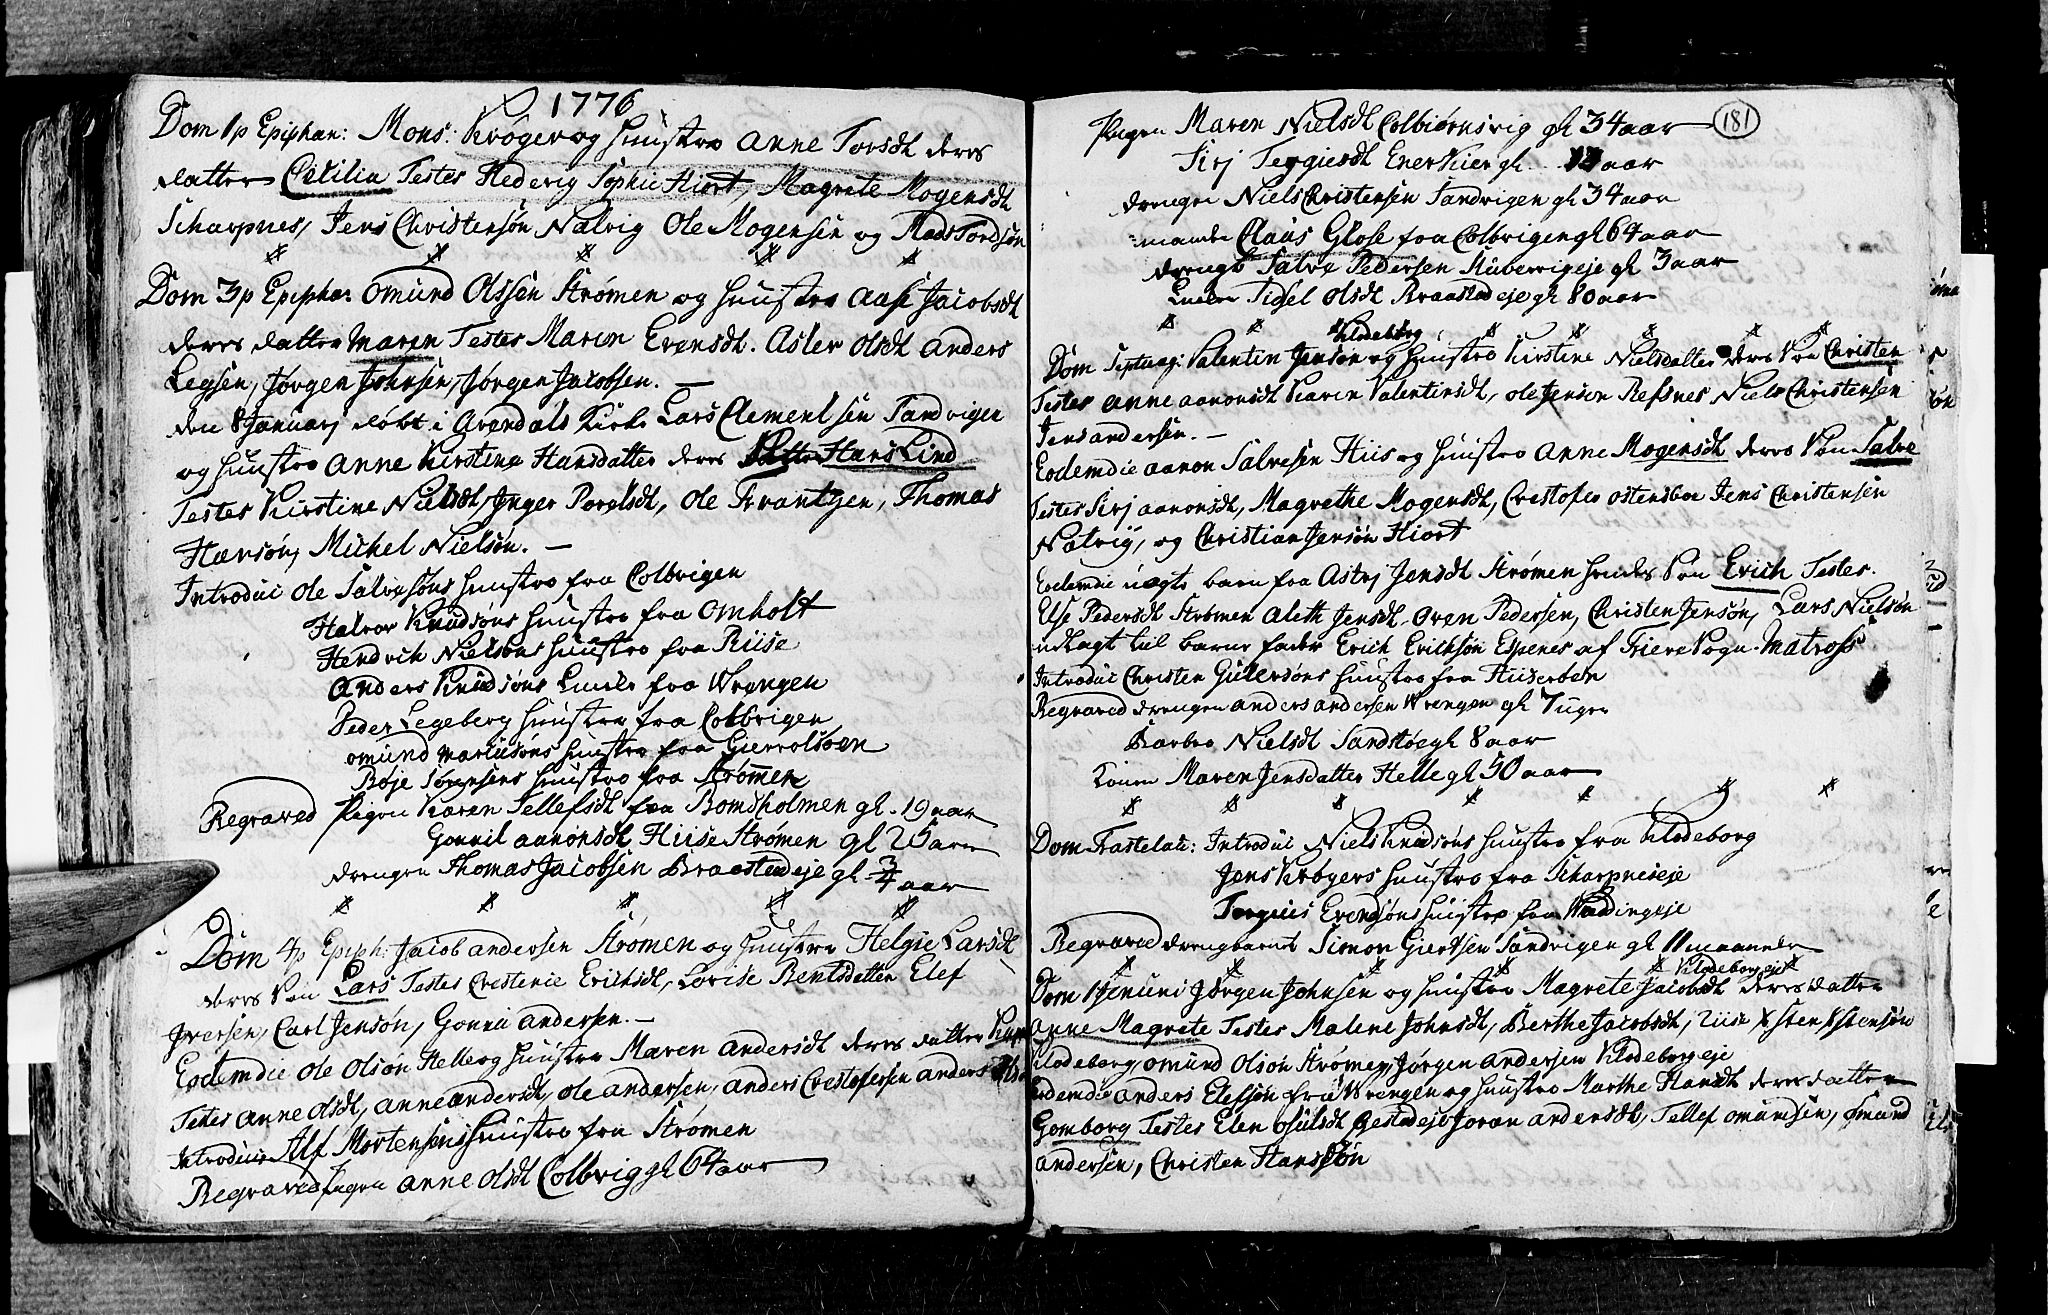 1776
Dom 1 p Epiphan: Mons: Krøger og Huustro Anne Torsdt deres
datter Cicilia Testes Hedevig Sophie Hiort, Magrete Mogensdt
Scharpnes, Jens Christensøn Natvig Ole Mogensen og Mads Tordsøn
Dom 3 p Epiphan: Omund Olssen Strømen og Huustro Aase Jacobsdt
deres datter Maren Testes Maren Evensdt. Aslev Olsdt Anders
Legsen, Jørgen Johnsen, Jørgen Jacobsen. —
den 8 Januarj døbt i Arendals Kirke Lars Clementsen Sandvigen
og Huustro Anne Kirstine Hansdatter deres Hans Lind
Testes Kirstine Nielsdt, Inger Povelsdt, Ole Frantzen, Thomas
Hansøn, Michel Nielsøn. —
Introduc Ole Salvesøns Huustro fra Colbrigen
Halvor Knudsøns Huustro fra Omholt
Hendrich Nielsøns Huustro fra Riise
Anders Knudsøns Encke fra Wrengen
Peder Legeberg Huustro fra Colbrigen
Omund Mariusøns Huustro fra Gierrolsøen
Boje Sørensens Huustro fra Strømen
Begraved Pigen Karen Tellefsdt fra Bomsholmen gl. 19 aar
Gonnil Aaronsdt Hiise Strømen gl 25 aar
drengen Thomas Jacobsen Braastedeje gl 3/4 aar
Dom 4 p Epiph: Jacob Andersen Strømen og Huustro Helgie Larsdt
deres Søn Lars Testes Crestenie Erichsdt, Lovise Bentsdatter Elef
Iversen, Carl Jensøn, Gonni Andersen. —
Eodem die Ole Olsøn Helle og Huustro Maren Andersdt deres datter
Testes Anne Olsdt, Anne Andersdt, Ole Andersen, Anders Crestofersen Anders
Introduc Alf Mortensøns Huustro fra Strømen
Begraved Pigen Anne Olsdt Colbrig gl 64 aar
181
Pigen Maren Nielsdt Colbiørnsvig gl 34 aar
Sirj Tergiesdt Enerkier gl. aar
drengen Niels Christensen Sandvigen gl 34 aar
manden Claus Glose fra Colbrigen gl 64 aar
drengen Salve Pedersen Hubervigeje gl 3 aar
Encken Sidsel Olsdt Braastadeje gl 80 aar
Kildeborg
Dom Septuag: Valentin Jensøn og Huustro Kirstine Nielsdatter deres Søn Christen
Testes Anne Aaronsdt Karen Valentinsdt, Ole Jensen Refsnes Niels Christensen
Jens Andersen. —
Eodem die Aaron Salvesen Hiis og Huustro Anne Mogensdt deres Søn Salve
Testes Sirj Aaronsdt, Magrethe Mogensdt, Crestofer Ostensboe Jens Christensen
Natvig, og Christian Jensøn Hiort
Eodem die uægte barn fra Astrj Jensdt Strømen hendes Søn Erich Testes.
Else Pedersdt Strømen Aleth Jensdt. Oven Pedersen, Christen Jensøn, Lars Nielsøn
udlagt til barne fader Erich Erichsøn Espenes af Friere Sogn. Matros
Introduc Christen Gullersøns Huustro fra Hiiserbøen
Begraved drengen Anders Andersen Wrengen gl 7 uger
Barbro Nielsdt Sandstøe gl 8 aar
Konen Maren Jensdatter Helle gl 50 aar
Dom Fastelau: Introduc Niels Knudsøns Huustro fra Kildeborg
Jens Krøgers Huustro fra Scharpneseje
Tergius Evensøns Huustro fra
Begraved drengbarnet Simon Giertsen Sandvigen gl 11 maaneder
Kildeborgeje
Dom 1 Jejuni Jørgen Johnsen og Huustro Magrete Jacobsdt deres datter
Anne Magrete Testes Malene Johnsdt, Berthe Jacobsdt, Østen Østensøn
Kildeborg, Omund Olsøn Strømen, Jørgen Andersen Kildeborgeje
Eodem die Anders Elefsøn fra Wrengen og Huustro Marthe Hansdt deres datter
Gomborg Testes Elen Osuldsdt Gestedeje Joran Andersdt, Tellef Omundsen, Omund
Andersen, Christen Hanssøn